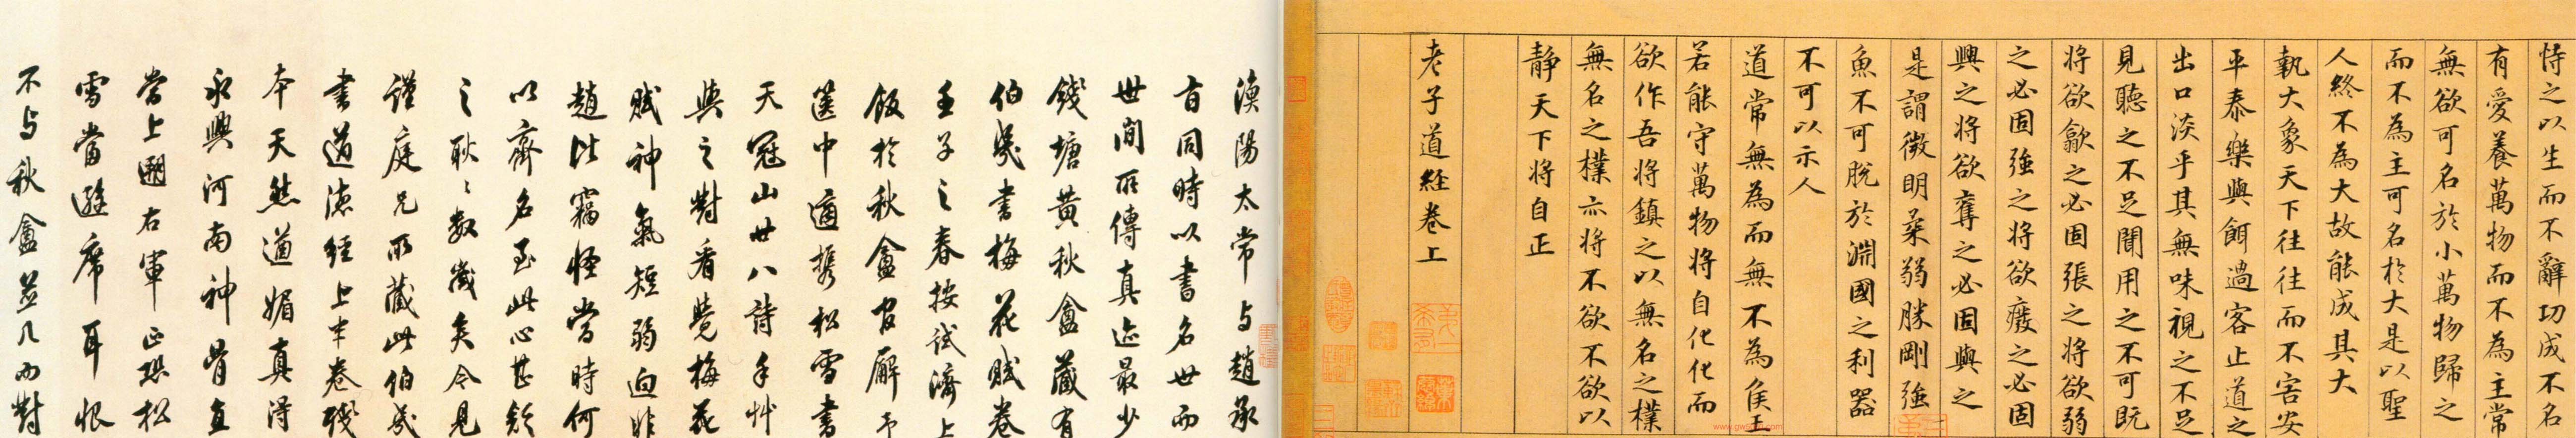 恃之以生而不辭功成不名
有愛養萬物而不為主常
無欲可名於小萬物歸之
而不為主可名於大是以聖
人終不為大故能成其大
執大象天下往往而不害安
平泰樂與餌過客止道之
出口淡乎其無味視之不足
見聽之不足聞用之不可既
將欲歙之必固張之將欲弱
之必固強之將欲廢之必固
興之將欲奪之必固與之
是謂微明柔弱勝剛強
魚不可脫於淵國之利器
不可以示人
道常無為而無不為侯王
若能守萬物將自化化而
欲作吾將鎮之以無名之樸
無名之樸亦將不欲不欲以
靜天下將自正
老子道經卷上
漁陽太常与趙承
旨同時以書名世而
世間所傳真迹最少
錢塘黃秋盦藏有
伯幾書梅花賦卷
壬子之春按試濟上
飯於秋盦官廨予
篋中適攜松雪書
天冠山廿八詩手艸
與之對看覺梅花
賦神氣短弱迥非
趙比竊怪當時何
以齊名至此心甚歉
之耿耿數歲矣今見
謹庭兄所藏此伯幾
書道德經上半卷殘
本天然遒媚真得
永興河南神骨直
當上溯右軍正恐松
雪當避席耳恨
不与秋盦並几而對
www.gw